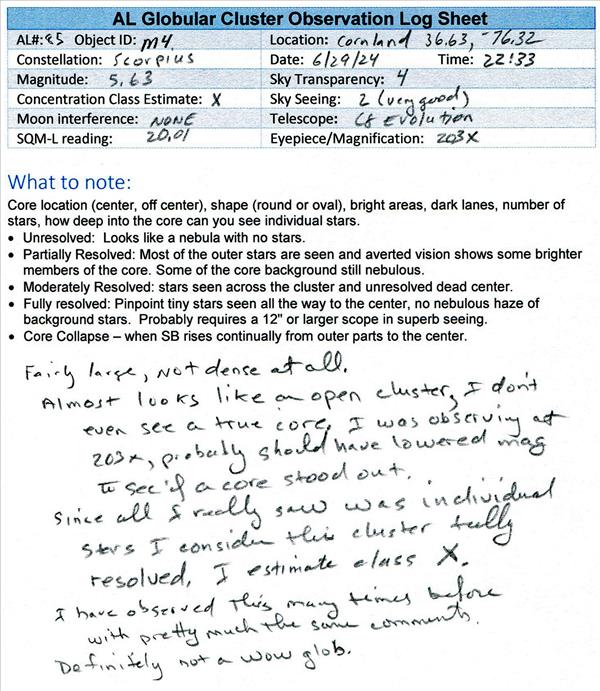 AL Globular Cluster Observation Log Sheet
AL#: 85 Object ID: M4 Location: Cornland 36.63, -76.32
Constellation: Scorpius Date: 6/29/24 Time: 22:33
Magnitude: 5.63 Sky Transparency: 4
Concentration Class Estimate: X Sky Seeing: 2 (very good)
Moon interference: NONE Telescope: C8 Evolution
SQM-L reading: 20.01 Eyepiece/Magnification: 203X
What to note:
Core location (center, off center), shape (round or oval), bright areas, dark lanes, number of
stars, how deep into the core can you see individual stars.
• Unresolved: Looks like a nebula with no stars.
• Partially Resolved: Most of the outer stars are seen and averted vision shows some brighter
members of the core. Some of the core background still nebulous.
• Moderately Resolved: stars seen across the cluster and unresolved dead center.
• Fully resolved: Pinpoint tiny stars seen all the way to the center, no nebulous haze of
background stars. Probably requires a 12" or larger scope in superb seeing.
• Core Collapse – when SB rises continually from outer parts to the center.
Fairly large, Not dense at all.
Almost looks like an open cluster, I don't
even see a true core. I was observing at
203x, probably should have lowered mag
to see if a core stood out.
Since all I really saw was individual
stars I consider this cluster fully
resolved. I estimate class X.
I have observed this many times before
with pretty much the same comments.
Definitely not a wow glob.